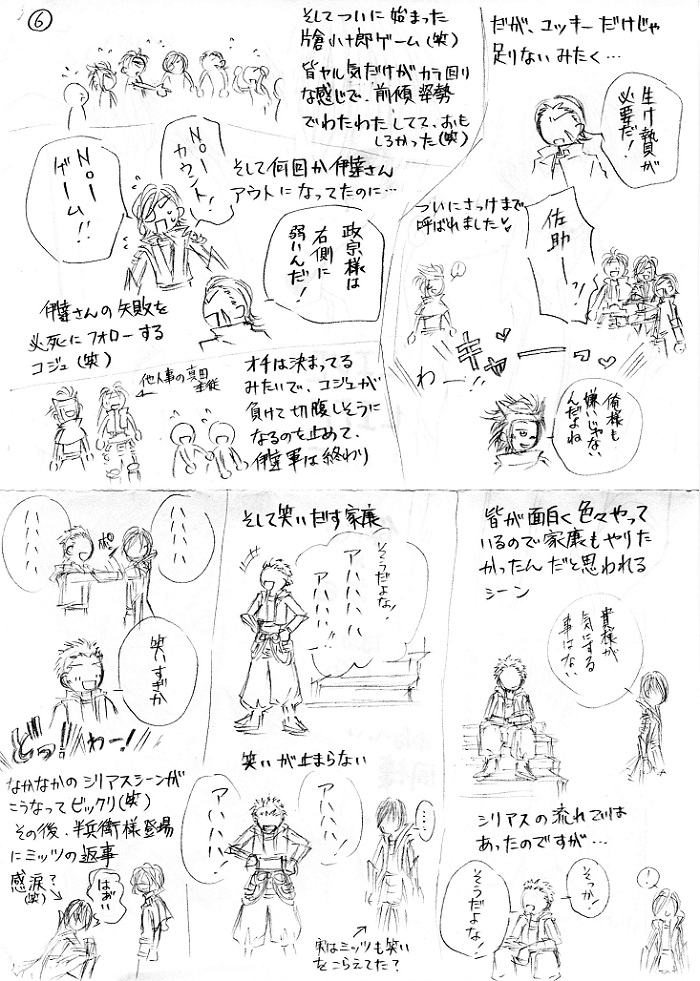 ⑥
だが、ユッキーだけじゃ
足りないみたく…
生け贄が
必要だ!
ついにさっけまで
呼ばれました♡
佐助ーっ!
!
キャーーー♡
わー!
俺様も
嫌いじゃない
んだよね
そしてついに始まった
片倉小十郎ゲーム(笑)
皆ヤル気だけがカラ回り
な感じで、前傾姿勢
でわたわたしてて、おも
しろかった(笑)
そして何回か伊達さん
アウトになってたのに…
No!
カウント!
No!
ゲーム!!
政宗様は
右側に
弱いんだ!
伊達さんの失敗を
必死にフォローする
コジュ(笑)
他人事の真田
主従
オチは決まってる
みたいで、コジュが
負けて切腹しそうに
なるのを止めて、
伊達軍は終わり
皆が面白く色々やって
いるので家康もやりた
かったんだと思われる
シーン
貴様が
気にする
事はない
シリアスの流れでは
あったのですが…
!
そっか!
そうだよな!
そして笑いだす家康
そうだよな!
アハハハハ
アハハハ…
笑いが止まらない
…
アハハハ!
アハハハハ!
実はミッツも笑い
をこらえてた?
ハハハハ
ハハハハ
ポン
笑いすぎか
どっ!!
わー!
なかなかのシリアスシーンが
こうなってビックリ(笑)
その後、半兵衛様登場
にミッツの返事
感涙?
(笑)
はぁい